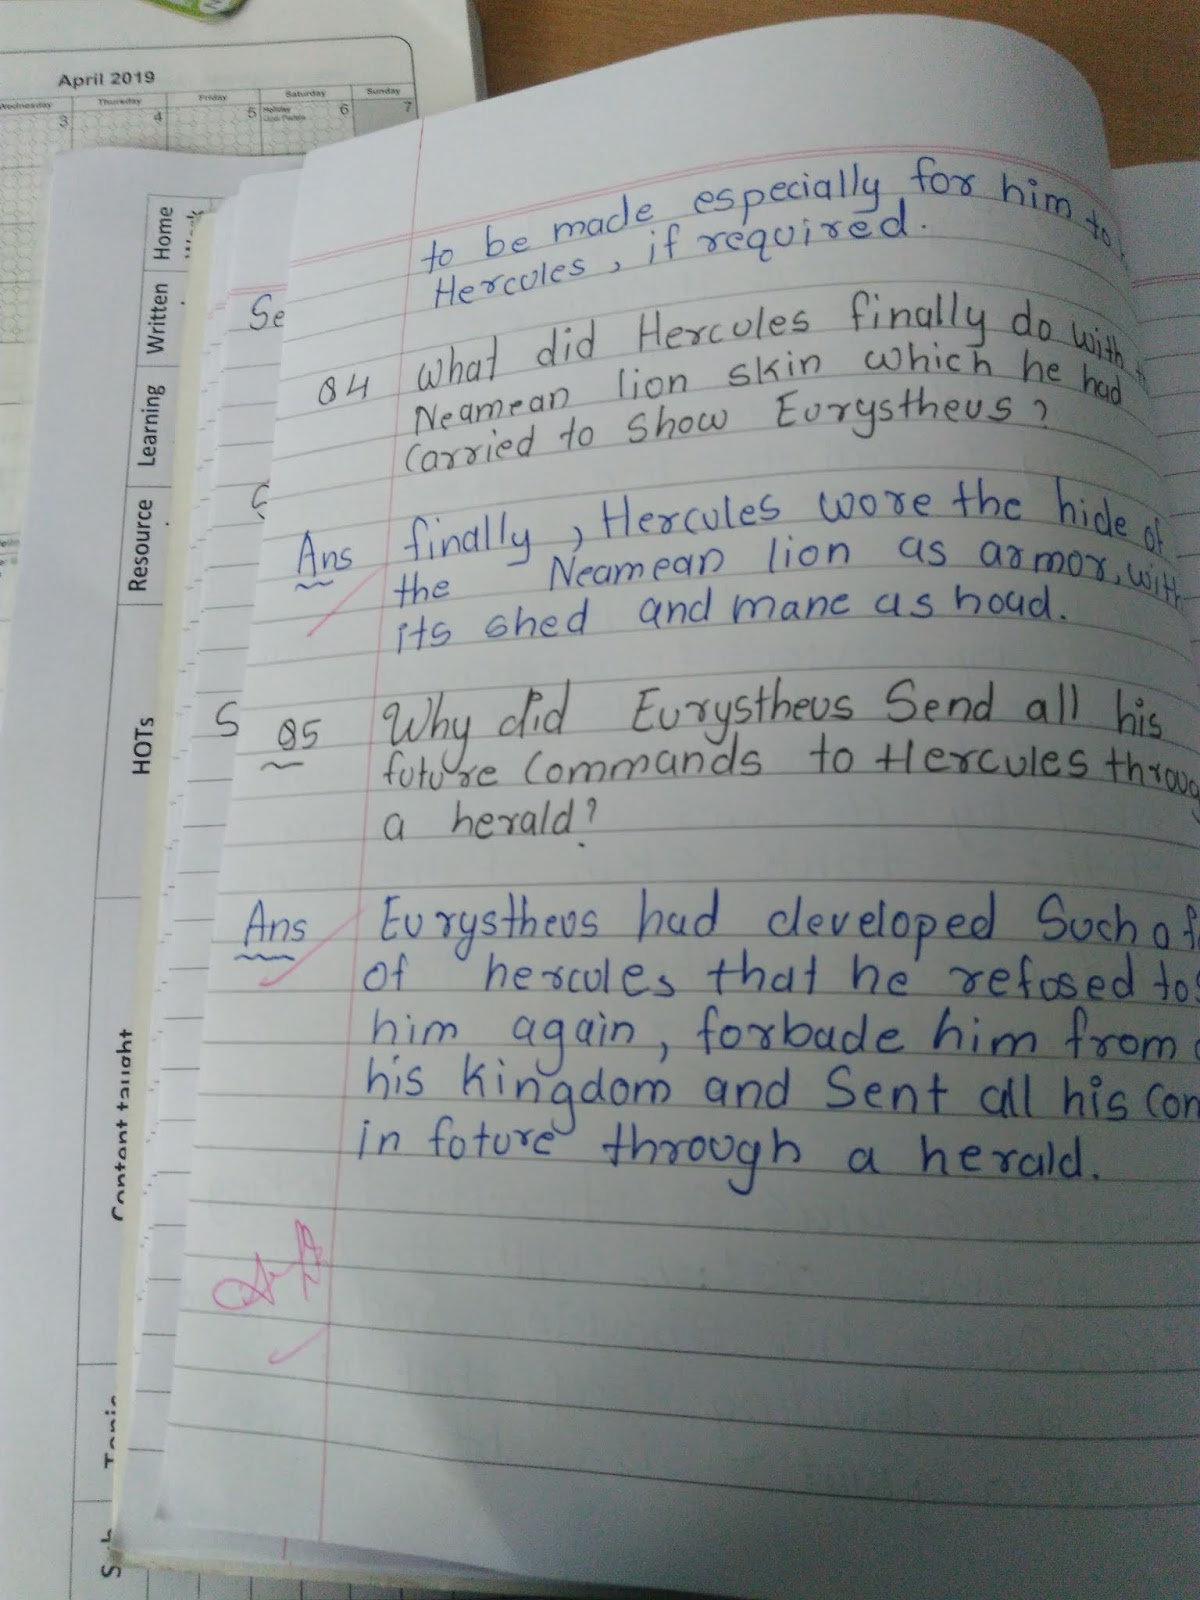 April 2019
Wednesday Thursday Friday Saturday Sunday
3 4 5 Holiday 6 7
Home
Written
Learning
Resource
HOTs
Content taught
Topic
Se
S
to be made especially for him to
Hercules, if required.
Q4 What did Hercules finally do with
Neamean lion skin which he had
Carried to show Eurystheus?
Ans finally, Hercules wore the hide of
the Neamean lion as armor, with
its shed and mane as hoad.
Q5 Why did Eurystheus Send all his
future Commands to Hercules throug
a herald?
Ans Eurystheus had developed Such a
of hercules that he refused to
him again, forbade him from
his kingdom and Sent all his Con
in future through a herald.